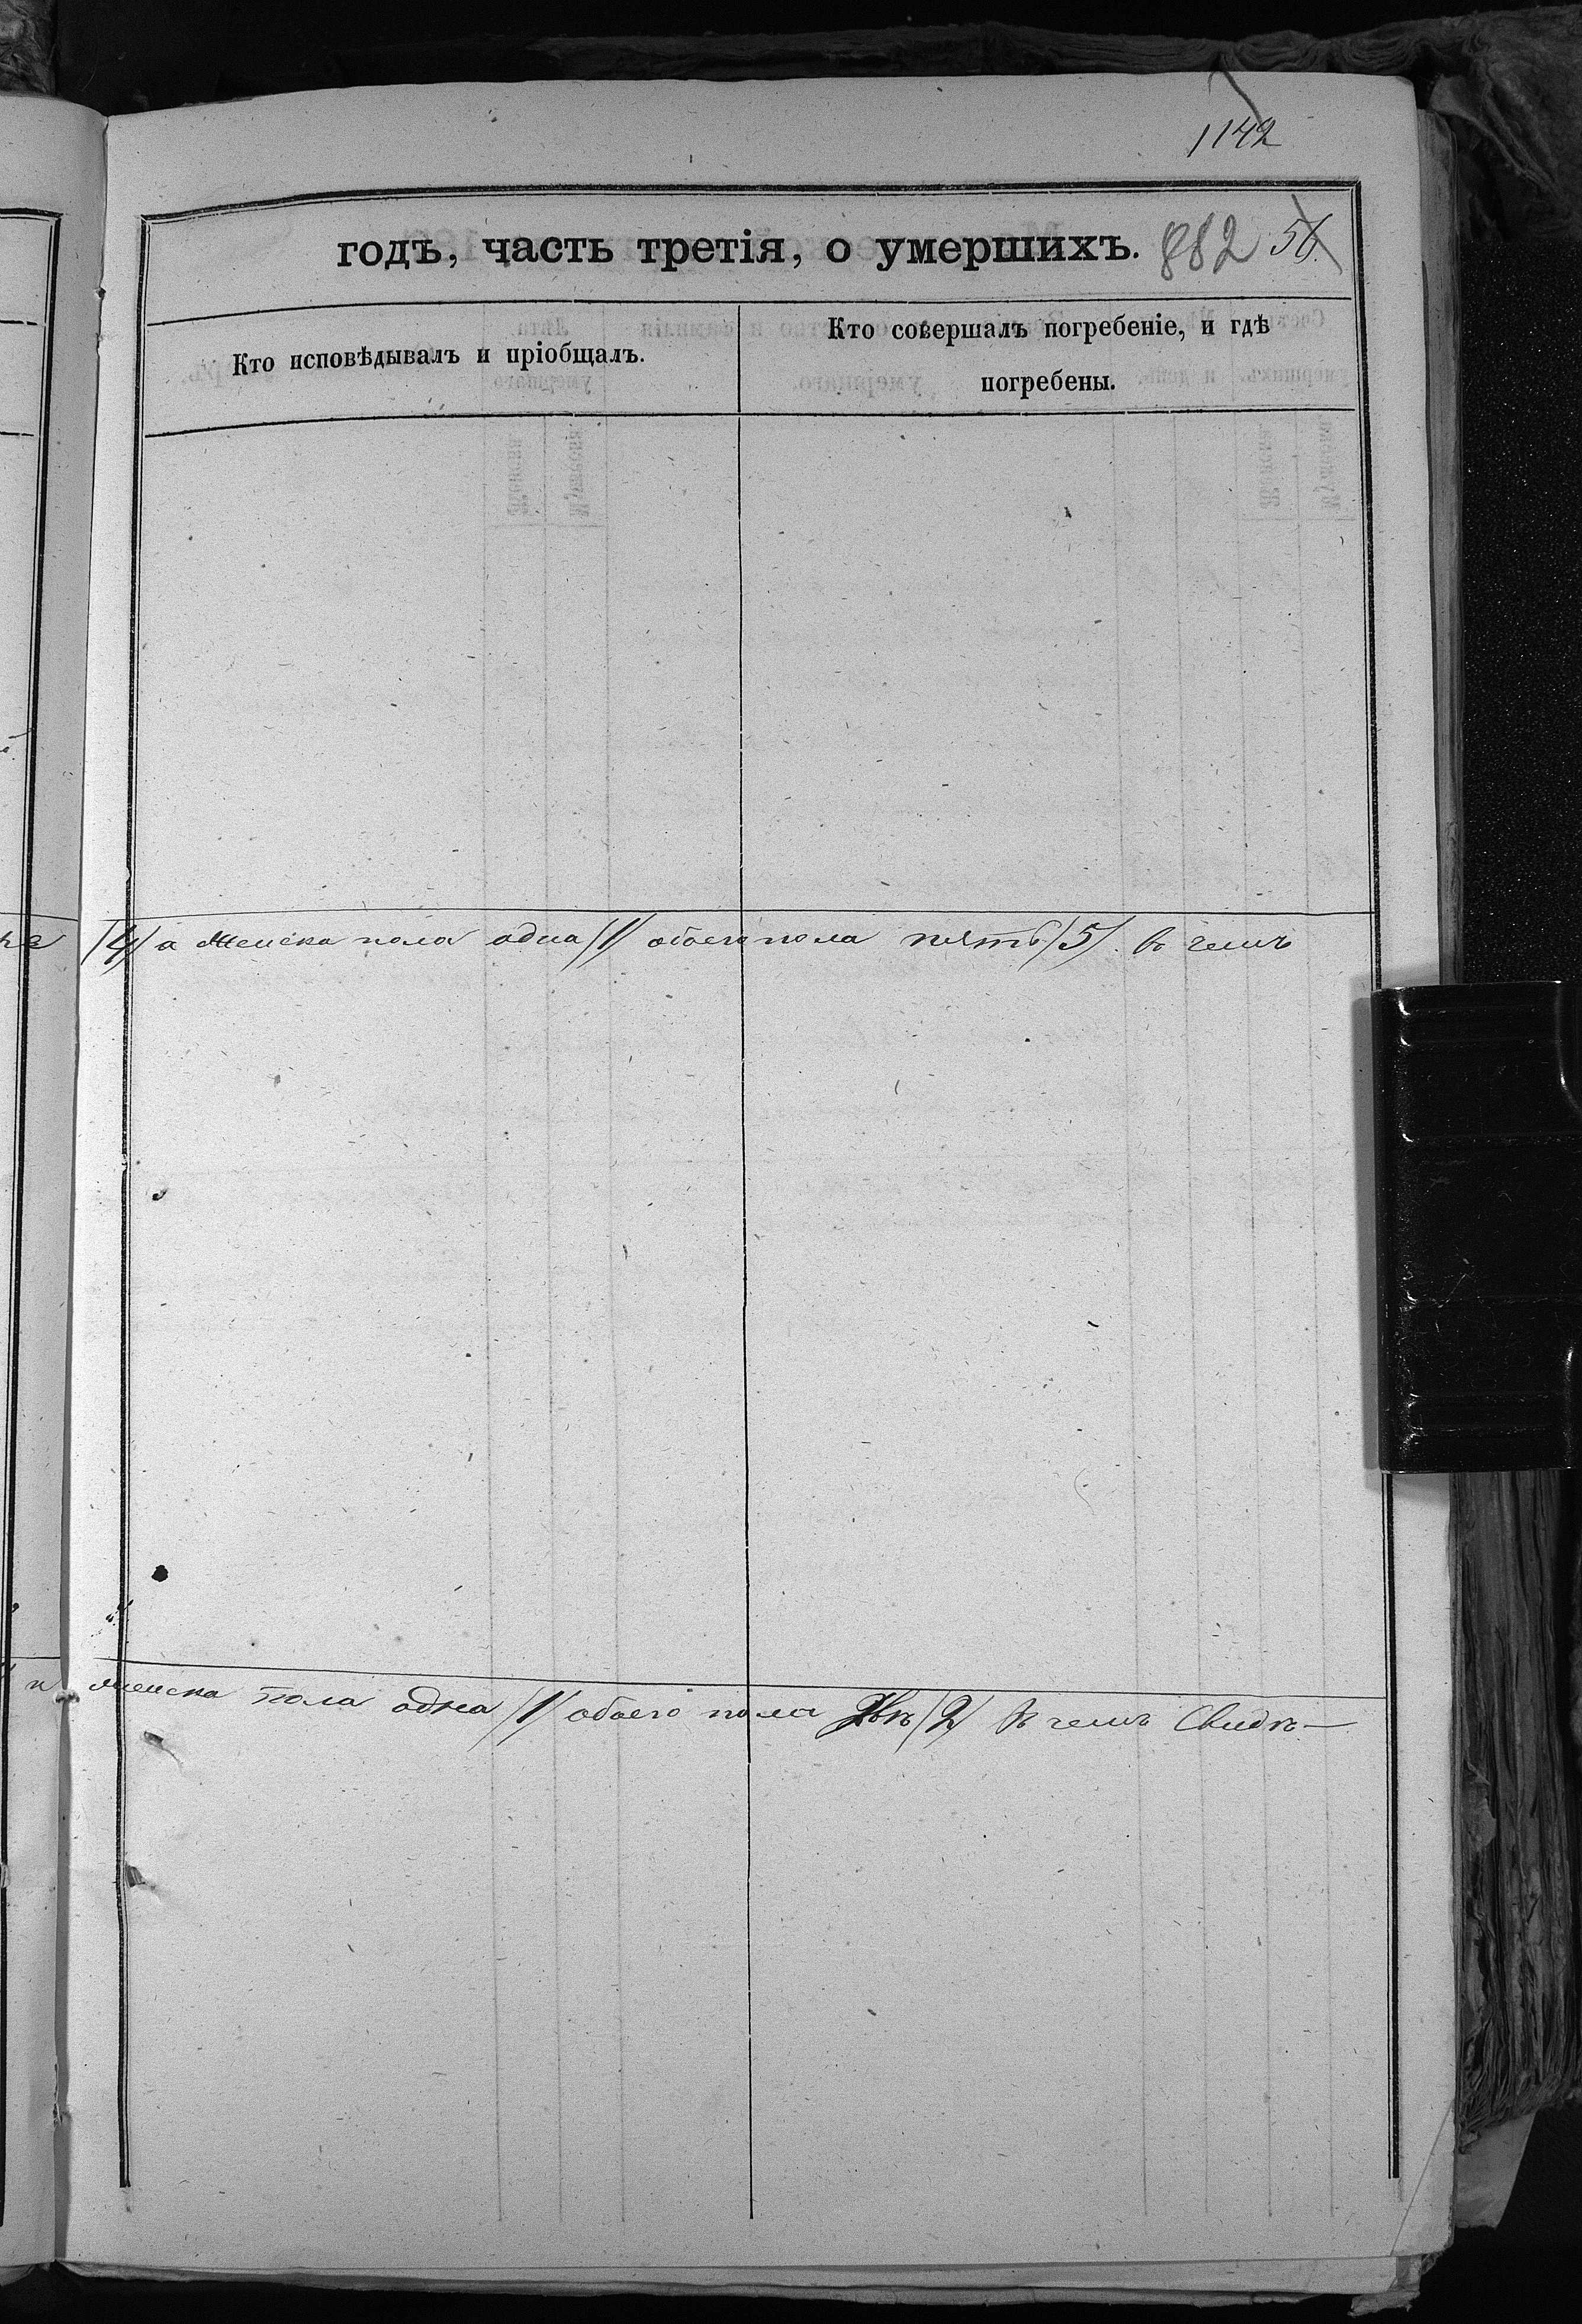 1142
годъ, часть третія, о умершихъ. 882 56
Кто исповѣдывалъ и пріобщалъ.
Кто совершалъ погребеніе, и гдѣ
погребены.
/4/ а женска пола одна /1/ обоего пола пять /5/. Въ чемъ
и женска пола одна /1/ обоего пола двѣ /2/ Въ чемъ Свидѣ—